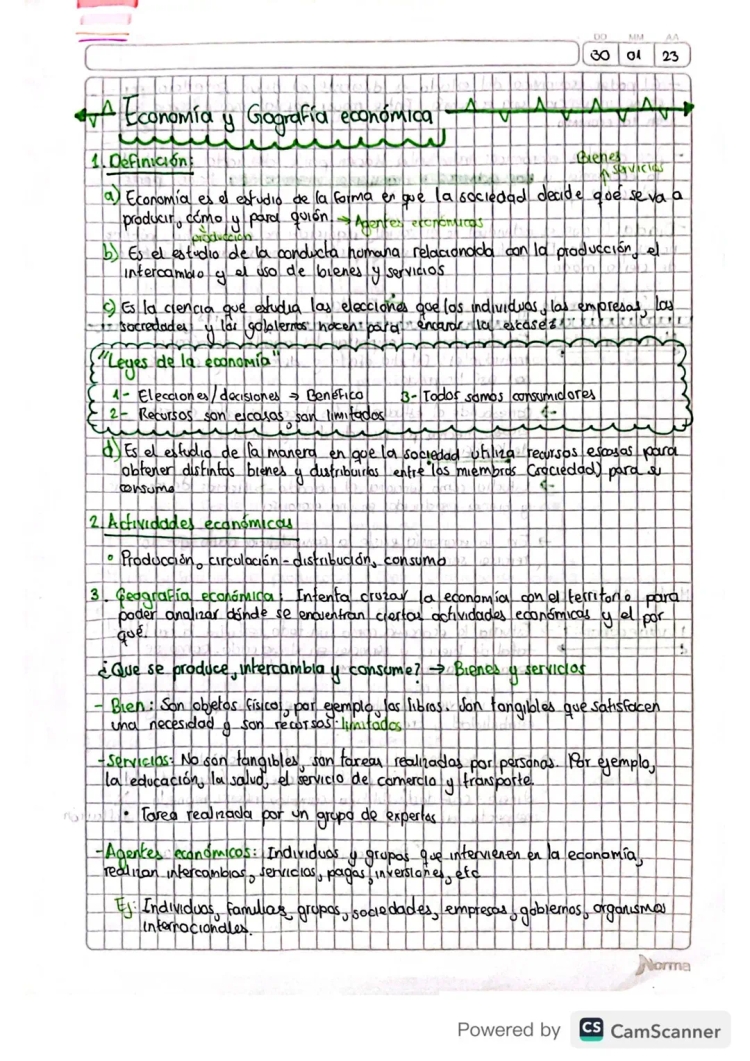 DO MM AA
30 01 23
Economía y Gografía económica
1. Definición:
Bienes
servicios
a) Economía es el estudio de la forma en que la sociedad decide qué se va a
producir, cómo y para quién. → Agentes económicos
producción
b) Es el estudio de la conducta humana relacionada con la producción, el
intercambio y el uso de bienes y servicios
c) Es la ciencia que estudia las elecciones que los individuos, las empresas, las
sociedades y los gobiernos hacen para encarar la escasez
"Leyes de la economía"
1- Elecciones/decisiones → Benéfico 3- Todos somos consumidores
2- Recursos son escasos, son limitados
d) Es el estudio de la manera en que la sociedad utiliza recursos escasos para
obtener distintos bienes y distribuirlos entre los miembros (sociedad) para su
consumo
2. Actividades económicas
• Producción, circulación - distribución, consumo
3. Geografía económica: Intenta cruzar la economía con el territorio para
poder analizar dónde se encuentran ciertas actividades económicas y el por
qué.
¿Que se produce, intercambia y consume? → Bienes y servicios
- Bien: Son objetos físicos, por ejemplo, los libros. Son tangibles que satisfacen
una necesidad y son recursos limitados
- Servicios: No son tangibles, son tareas realizadas por personas. Por ejemplo,
la educación, la salud, el servicio de comercio y transporte.
• Tarea realizada por un grupo de expertos
- Agentes económicos: Individuos y grupos que intervienen en la economía,
realizan intercambios, servicios, pagos, inversiones, etc
Ej: Individuos, familias, grupos, sociedades, empresas, gobiernos, organismos
internacionales.
Norma
Powered by CS CamScanner